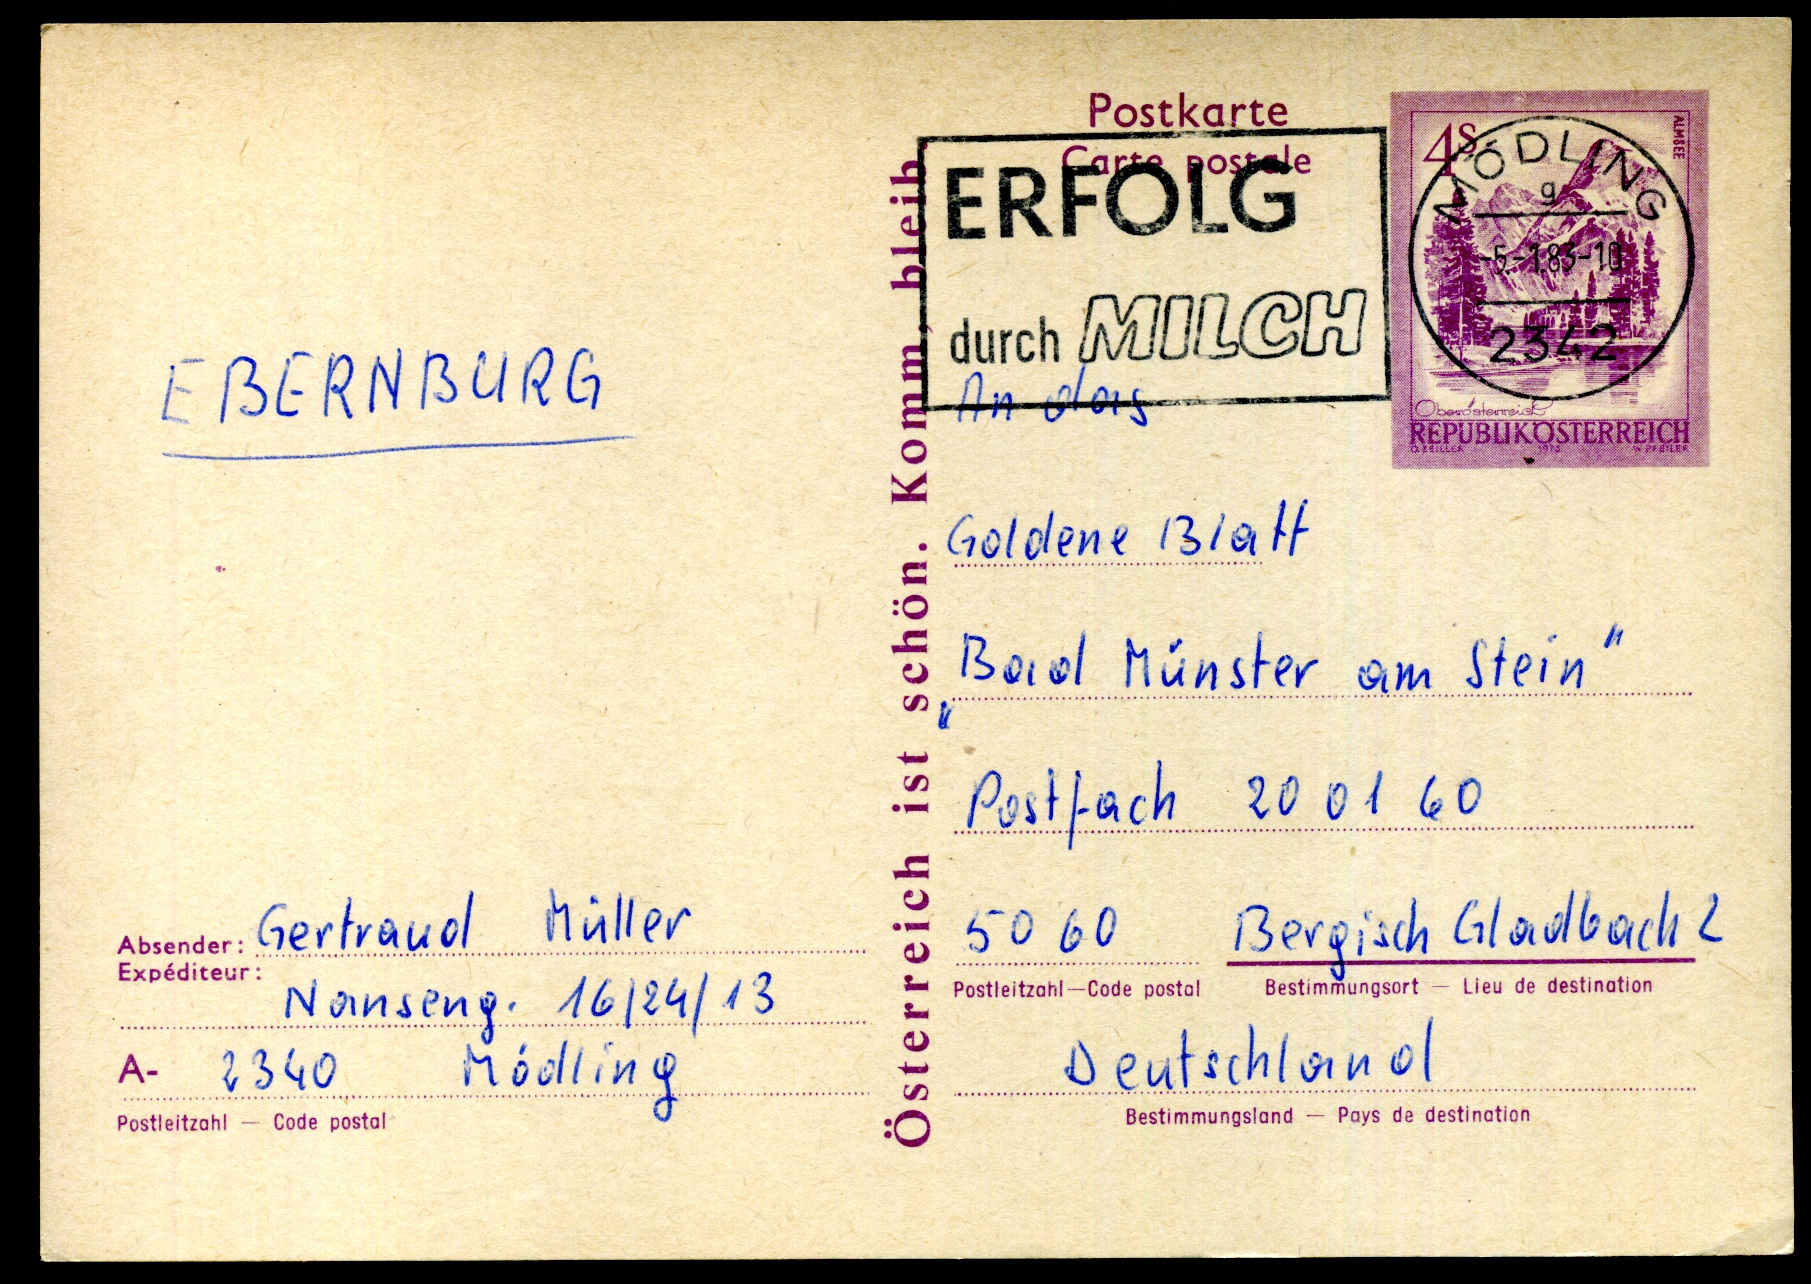 Postkarte
Carte postale
ERFOLG
durch MILCH
4 S
ALMSEE
MÖDLING
g
-5.-1.83-10
2342
Oberösterreich
REPUBLIK ÖSTERREICH
O. ZEILLER 1973 W. PFEILER
EBERNBURG
Österreich ist schön. Komm, bleib.
An das
Goldene Blatt
"Bad Münster am Stein"
Postfach 20 01 60
5060 Bergisch Gladbach 2
Postleitzahl — Code postal Bestimmungsort — Lieu de destination
Deutschland
Bestimmungsland — Pays de destination
Absender: Gertraud Müller
Expéditeur:
Nanseng. 16/24/13
A- 2340 Mödling
Postleitzahl — Code postal